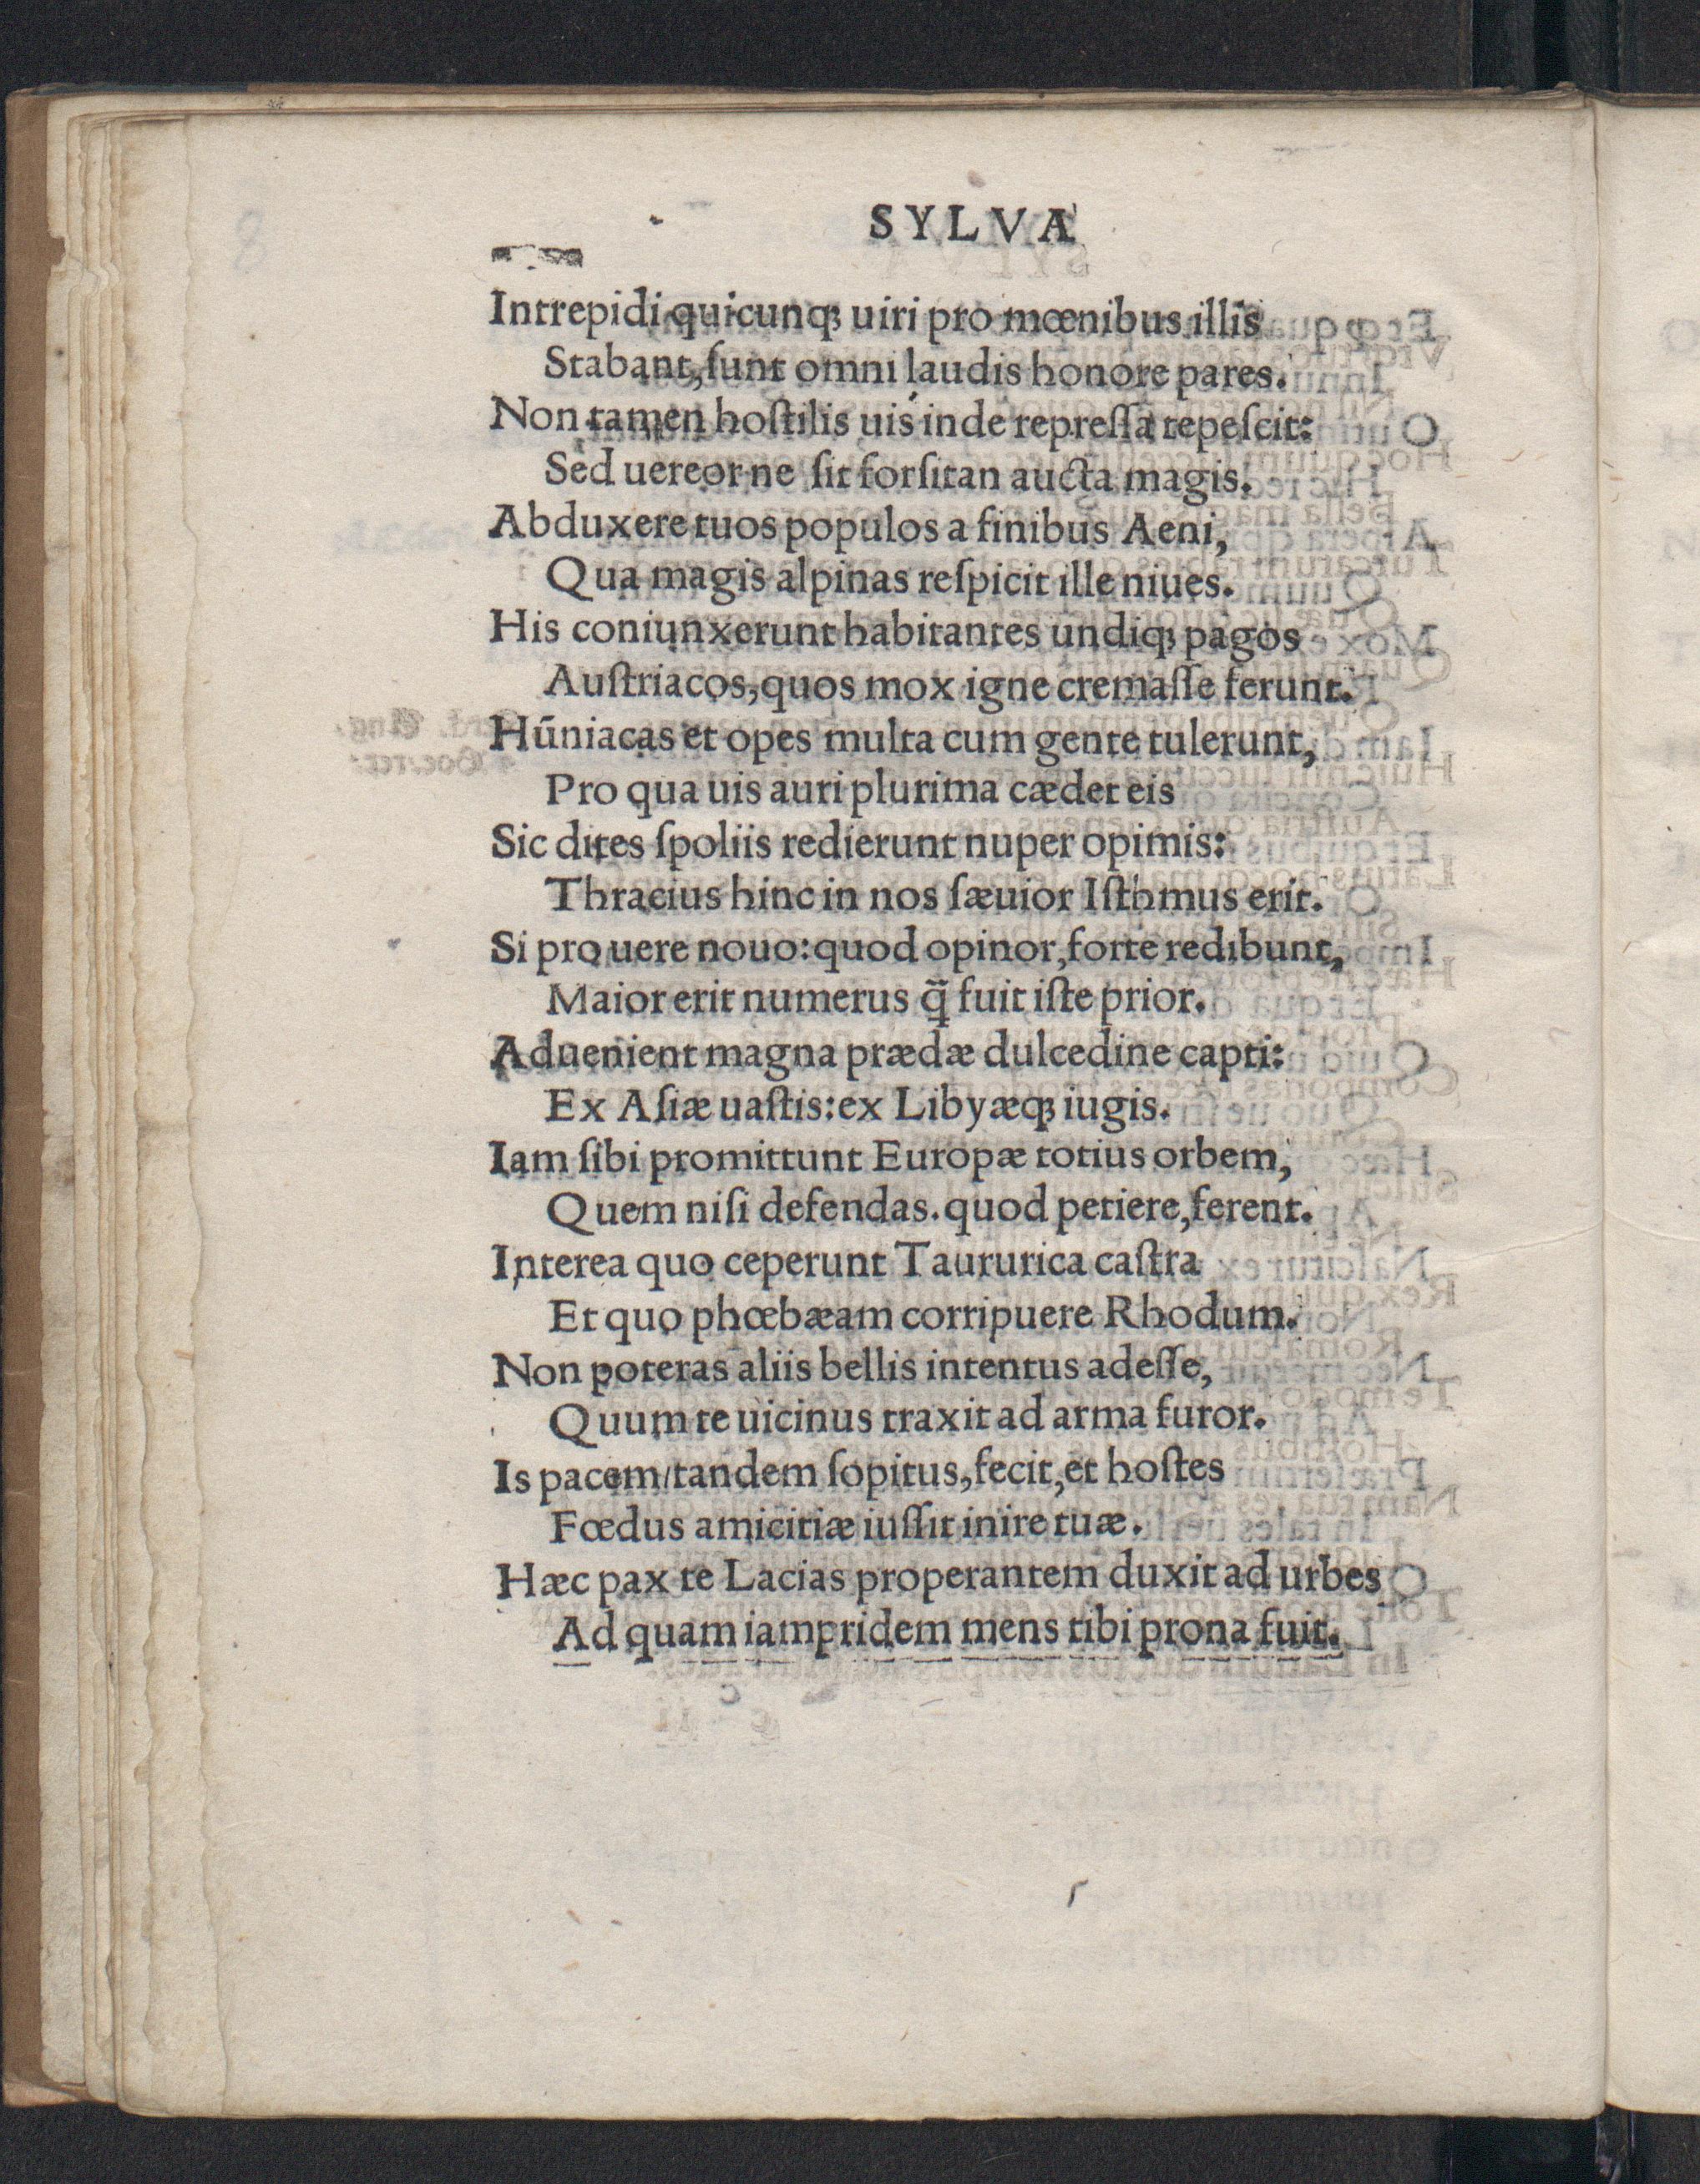 SYLVA
Intrepidi quicunqꝫ uiri pro mœnibus illis
Stabant, ſunt omni laudis honore pares.
Non tamen hoſtilis uis inde repreſſa tepeſcit:
Sed uereor ne ſit forſitan aucta magis.
Abduxere tuos populos a finibus Aeni,
Qua magis alpinas reſpicit ille niues.
His coniunxerunt habitantes undiqꝫ pagos
Auſtriacos, quos mox igne cremaſſe ferunt.
Hūniacas et opes multa cum gente tulerunt,
Pro qua uis auri plurima cædet eis
Sic dites ſpoliis redierunt nuper opimis:
Thracius hinc in nos ſæuior Iſthmus erit.
Si pro uere nouo: quod opinor, forte redibunt,
Maior erit numerus q̃ fuit iſte prior.
Aduenient magna prædæ dulcedine capti:
Ex Aſiæ uaſtis: ex Libyæqꝫ iugis.
Iam ſibi promittunt Europæ totius orbem,
Quem niſi defendas. quod petiere, ferent.
Interea quo ceperunt Taururica caſtra
Et quo phœbæam corripuere Rhodum.
Non poteras aliis bellis intentus adeſſe,
Quum te uicinus traxit ad arma furor.
Is pacem tandem ſopitus, fecit, et hoſtes
Fœdus amicitiæ iuſſit inire tuæ.
Hæc pax te Lacias properantem duxit ad urbes
Ad quam iampridem mens tibi prona fuit.